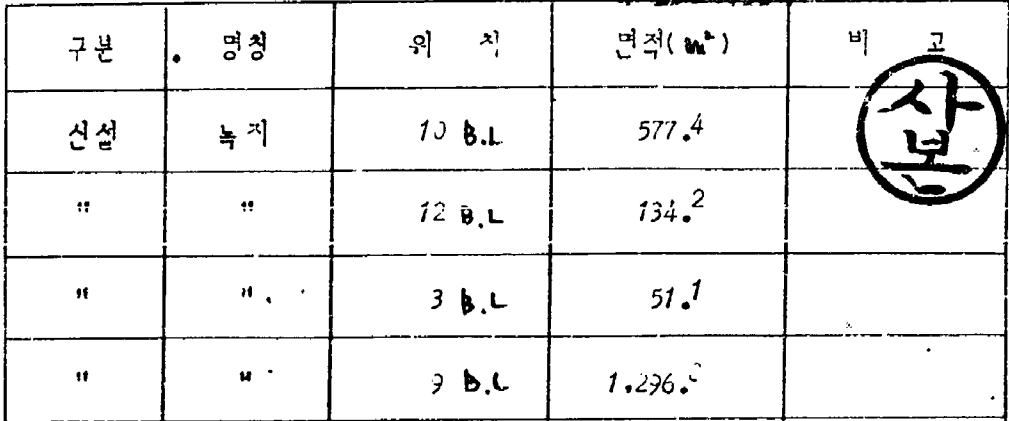 구분 명칭 위 치 면적(m²) 비 고
사본
신설 녹지 10 B.L 577.4
" " 12 B.L 134.2
" " 3 B.L 51.1
" " 9 B.L